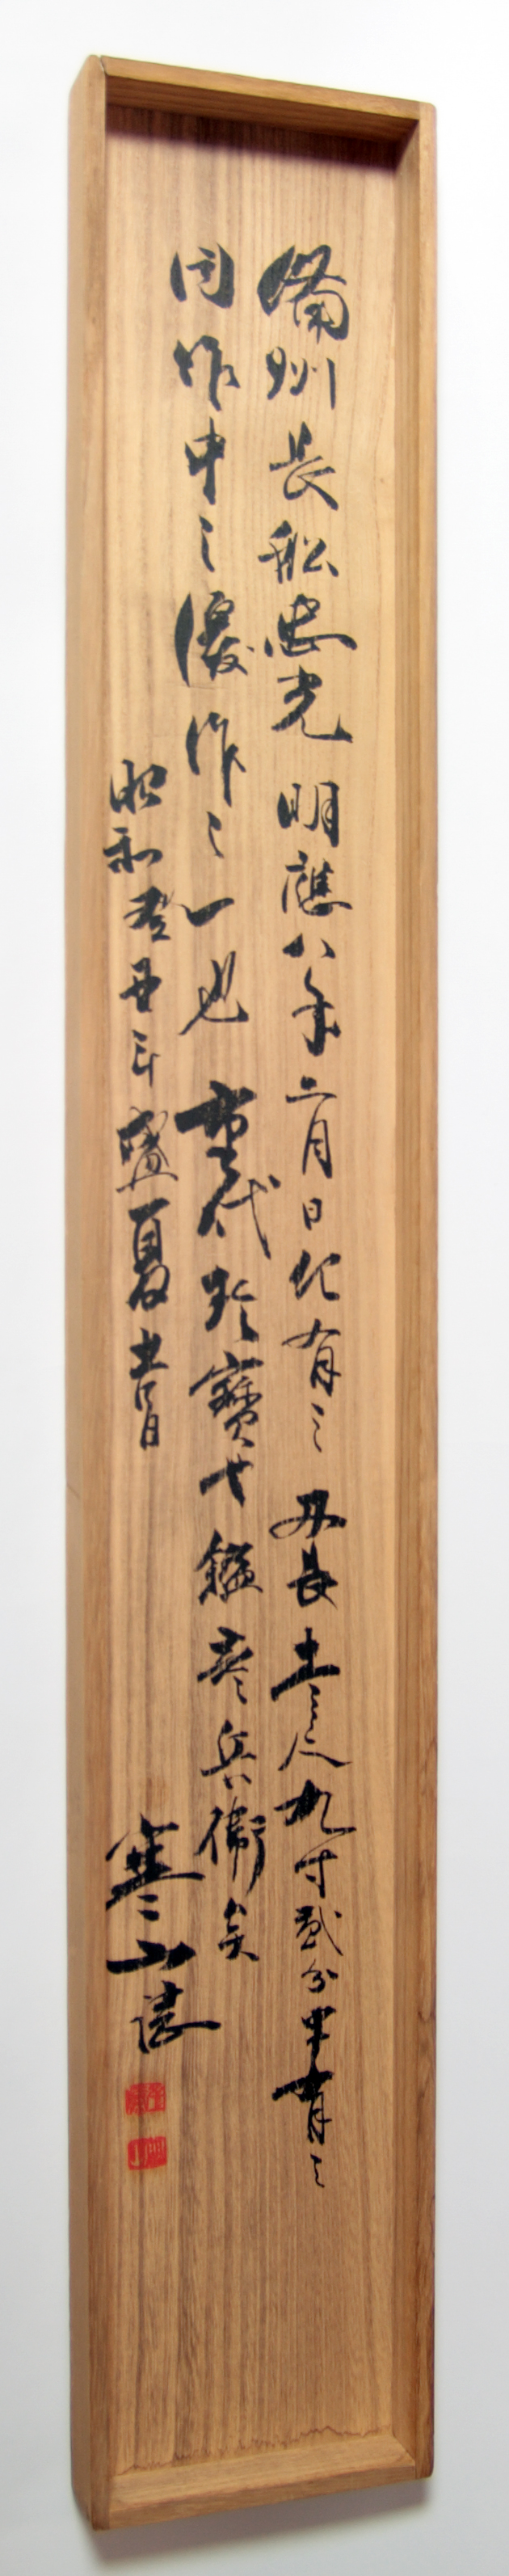 備州長船忠光 明應八年二月日紀有之 刃長 弐尺九寸貳分半有之
同作中之優作之一也 重代珍寶 鑑 兵衛
昭和癸丑年盛夏書
寒山誌